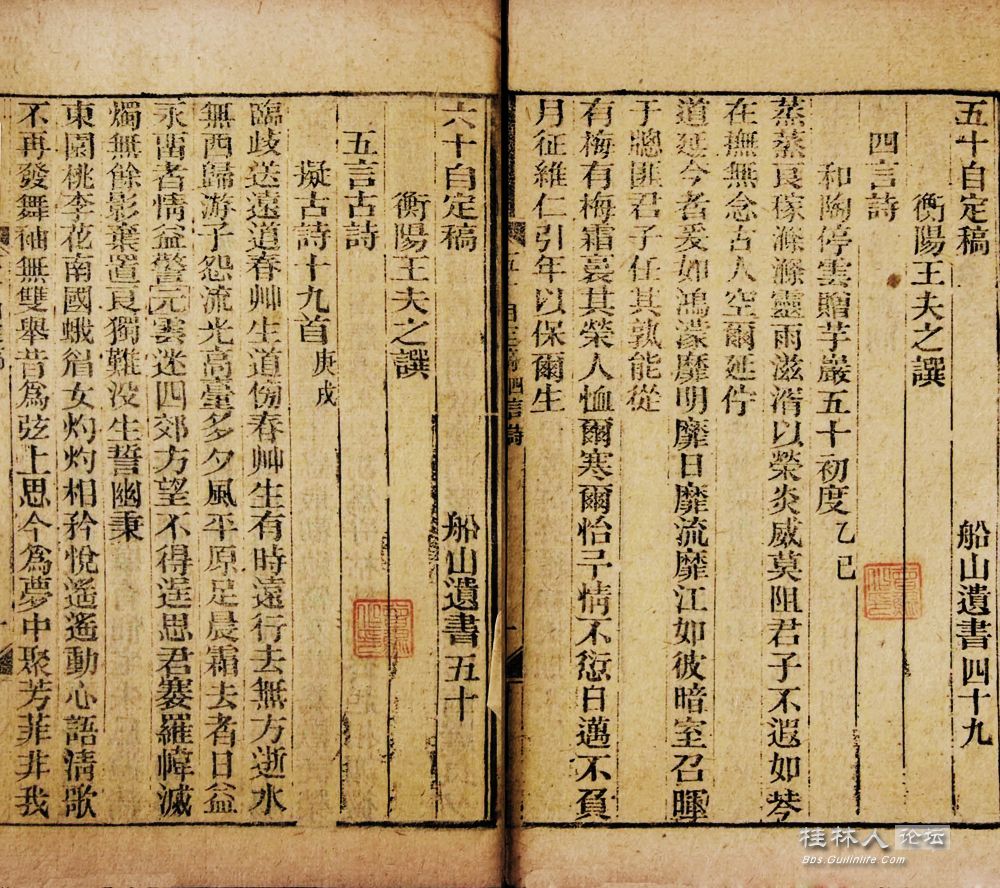 五十自定稿 船山遺書四十九
衡陽王夫之譔
四言詩
和陶停雲贈芋巖五十初度 乙巳
蒸蒸良稼滌滌靈雨滋湑以榮炎威莫阻君子不遐如琴
在撫無念古人空爾延佇
道延今者爰如鴻濛靡明靡日靡流靡江如彼暗室召暉
于牕匪君子任其孰能從
有梅有梅霜裛其榮人恤爾寒爾怡予情不愆日邁不負
月征維仁引年以保爾生
六十自定稿 船山遺書五十
衡陽王夫之譔
五言古詩
擬古詩十九首 庚戌
臨歧送遠道春艸生道傍春艸生有時遠行去無方逝水
無西歸游子怨流光高臺多夕風平原足晨霜去者日益
永畱者情益警元雲迷四郊方望不得逞思君褰羅幃滅
燭無餘影棄置良獨難没生誓幽秉
東園桃李花南國蛾眉女灼灼相矜悅遙遙動心語清歌
不再發舞袖無雙舉昔爲弦上思今爲夢中聚芳菲非我
桂林人论坛
Bbs.Guilinlife.Com